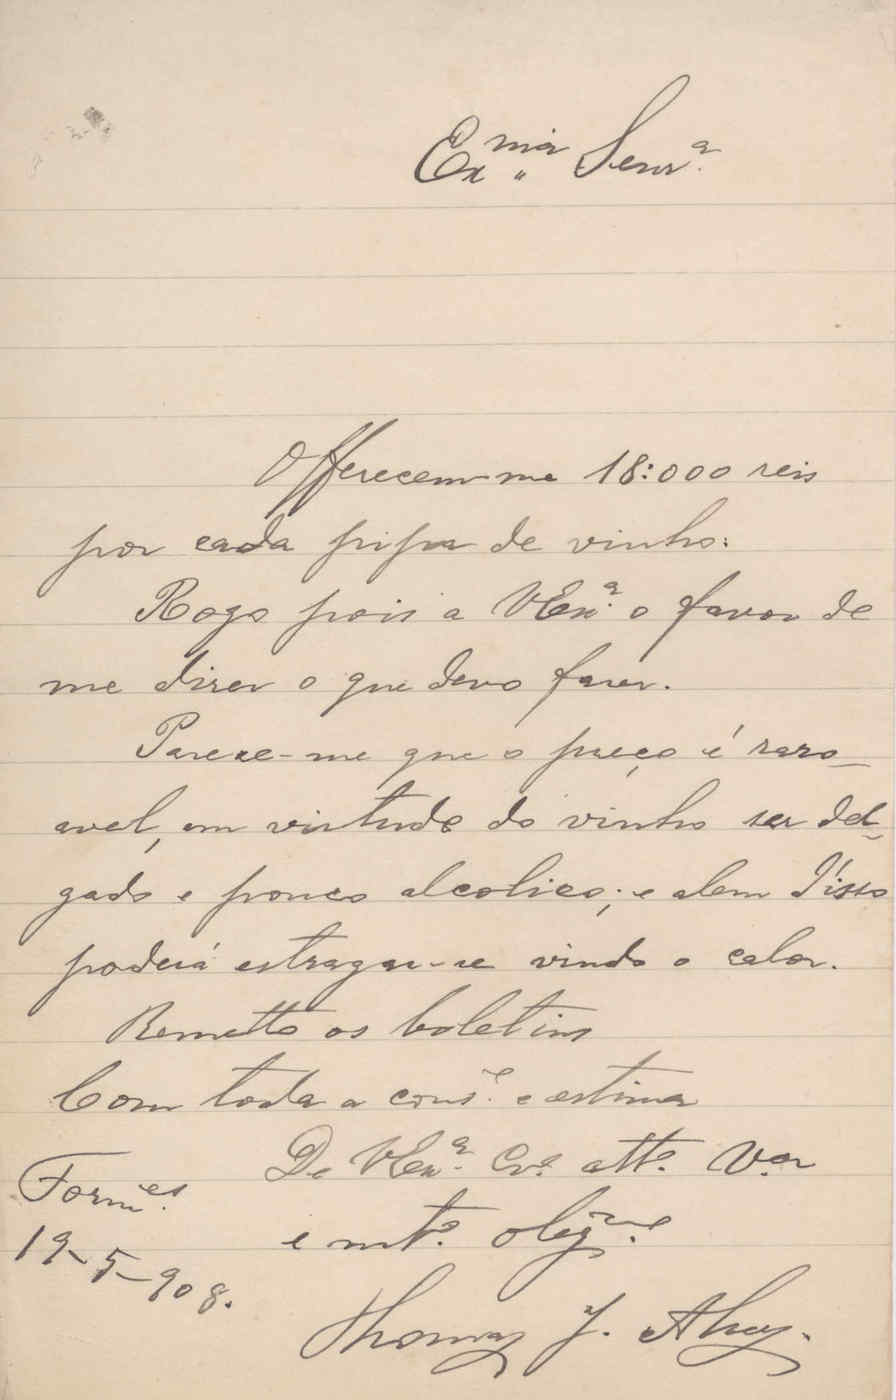 Ex.ma Senr.a
Offerecem-me 18:000 reis
por cada pipa de vinho.
Rogo pois a V Ex.a o favor de
me dizer o que devo fazer.
Parece-me que o preço é razo-
avel, em virtude do vinho ser del-
gado e pouco alcolico; e alem d'isso
poderá estragar-se vindo o calor.
Remetto os boletins
Com toda a cons.e e estima
De V Ex.a Cr.o att.o V.or
e mt.o obg.
Forn.es
19-5-908.
Thomaz J.